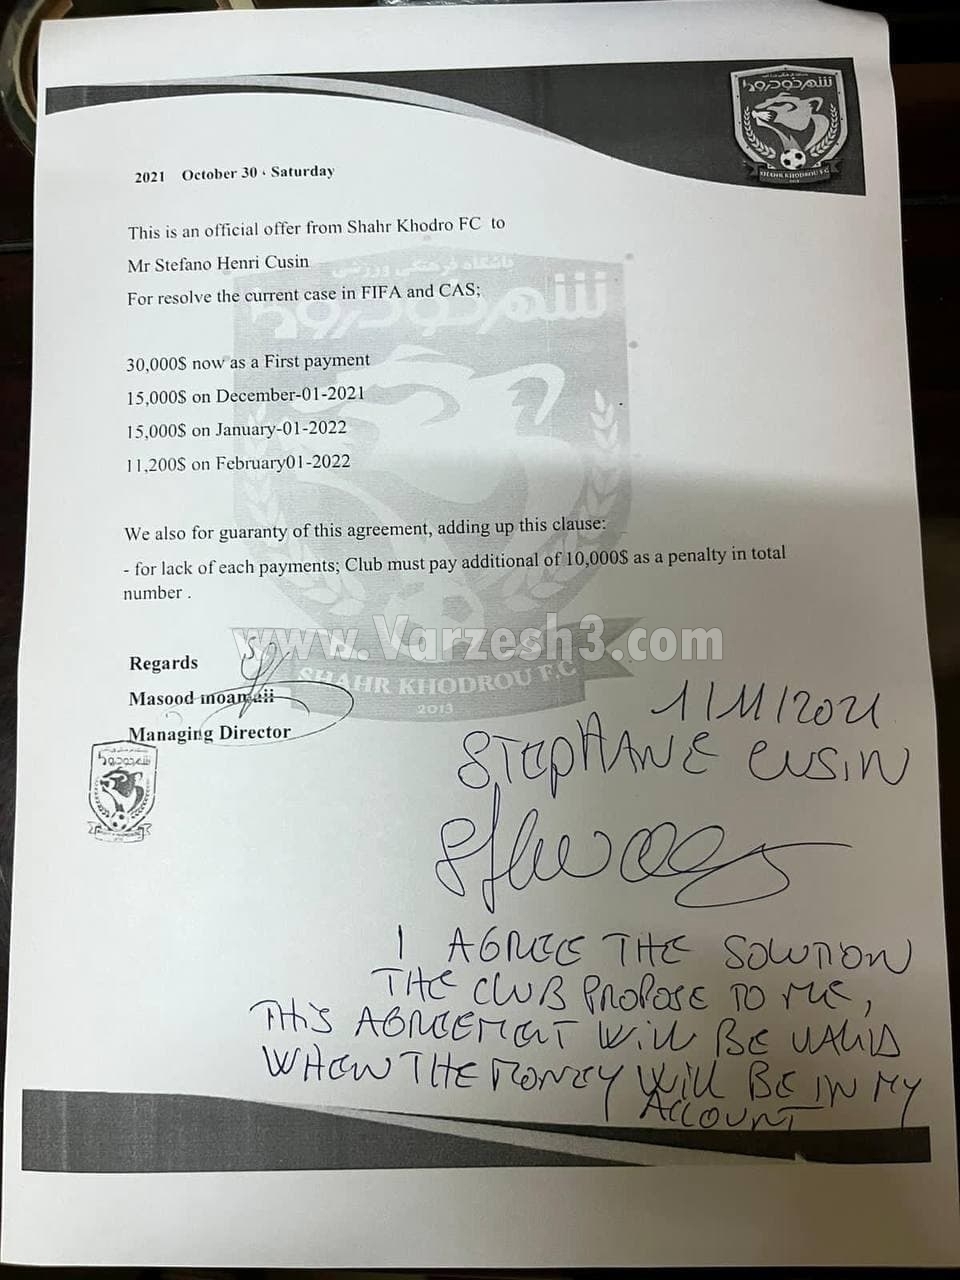 شهرخودرو
SHAHR KHODROU F.C
2021 October 30 ، Saturday
This is an official offer from Shahr Khodro FC to
Mr Stefano Henri Cusin
For resolve the current case in FIFA and CAS;
باشگاه فرهنگی ورزشی
شهرخودرو
30,000$ now as a First payment
15,000$ on December-01-2021
15,000$ on January-01-2022
11,200$ on February01-2022
We also for guaranty of this agreement, adding up this clause:
- for lack of each payments; Club must pay additional of 10,000$ as a penalty in total
number .
www.Varzesh3.com
SHAHR KHODROU F.C
2013
Regards
Masood moamaii
Managing Director
شهرخودرو
1/11/2021
STEPHANE CUSIN
I AGREE THE SOLUTION
THE CLUB PROPOSE TO ME,
THIS AGREEMENT WILL BE VALID
WHEN THE MONEY WILL BE IN MY
ACCOUNT